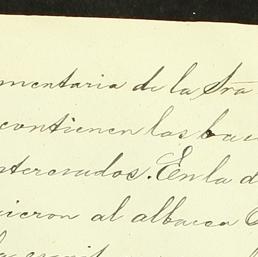 mentaria de la Sra
contienen los ba
nteresados. En la d
ieron al albacea